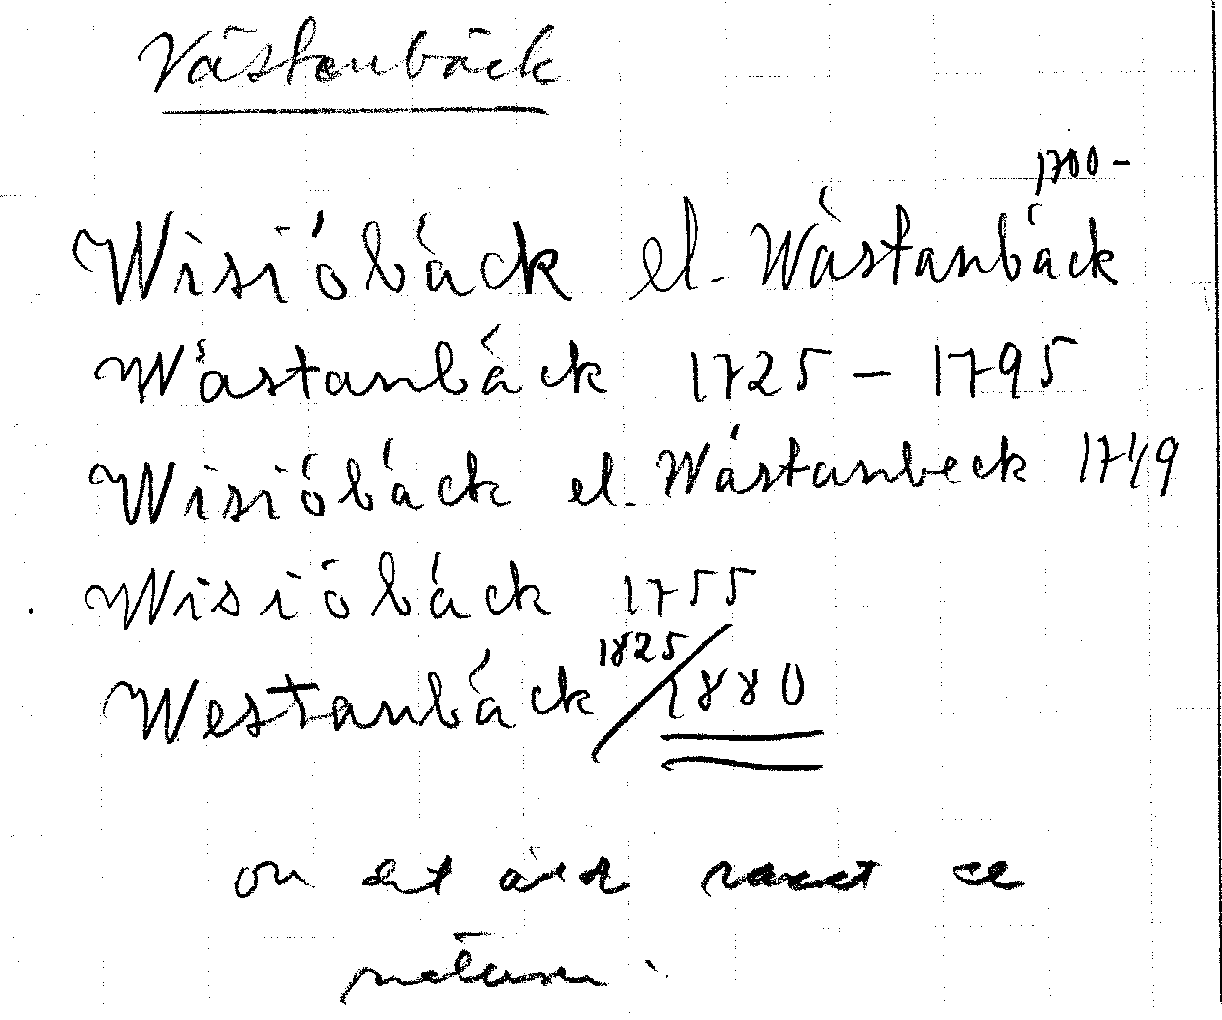 Västenbäck
1700-
Wisiöbäck el. Wästanbäck
Wästanbäck 1725 - 1795
Wisiöbäck el. Wästanbeck 1749
Wisiöbäck 1755
Westanbäck 1825/1880